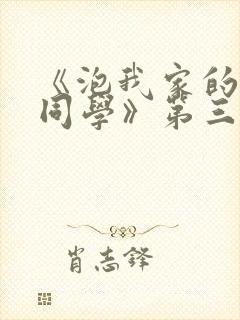 《泡我家的
同學》第三
肖志鋒